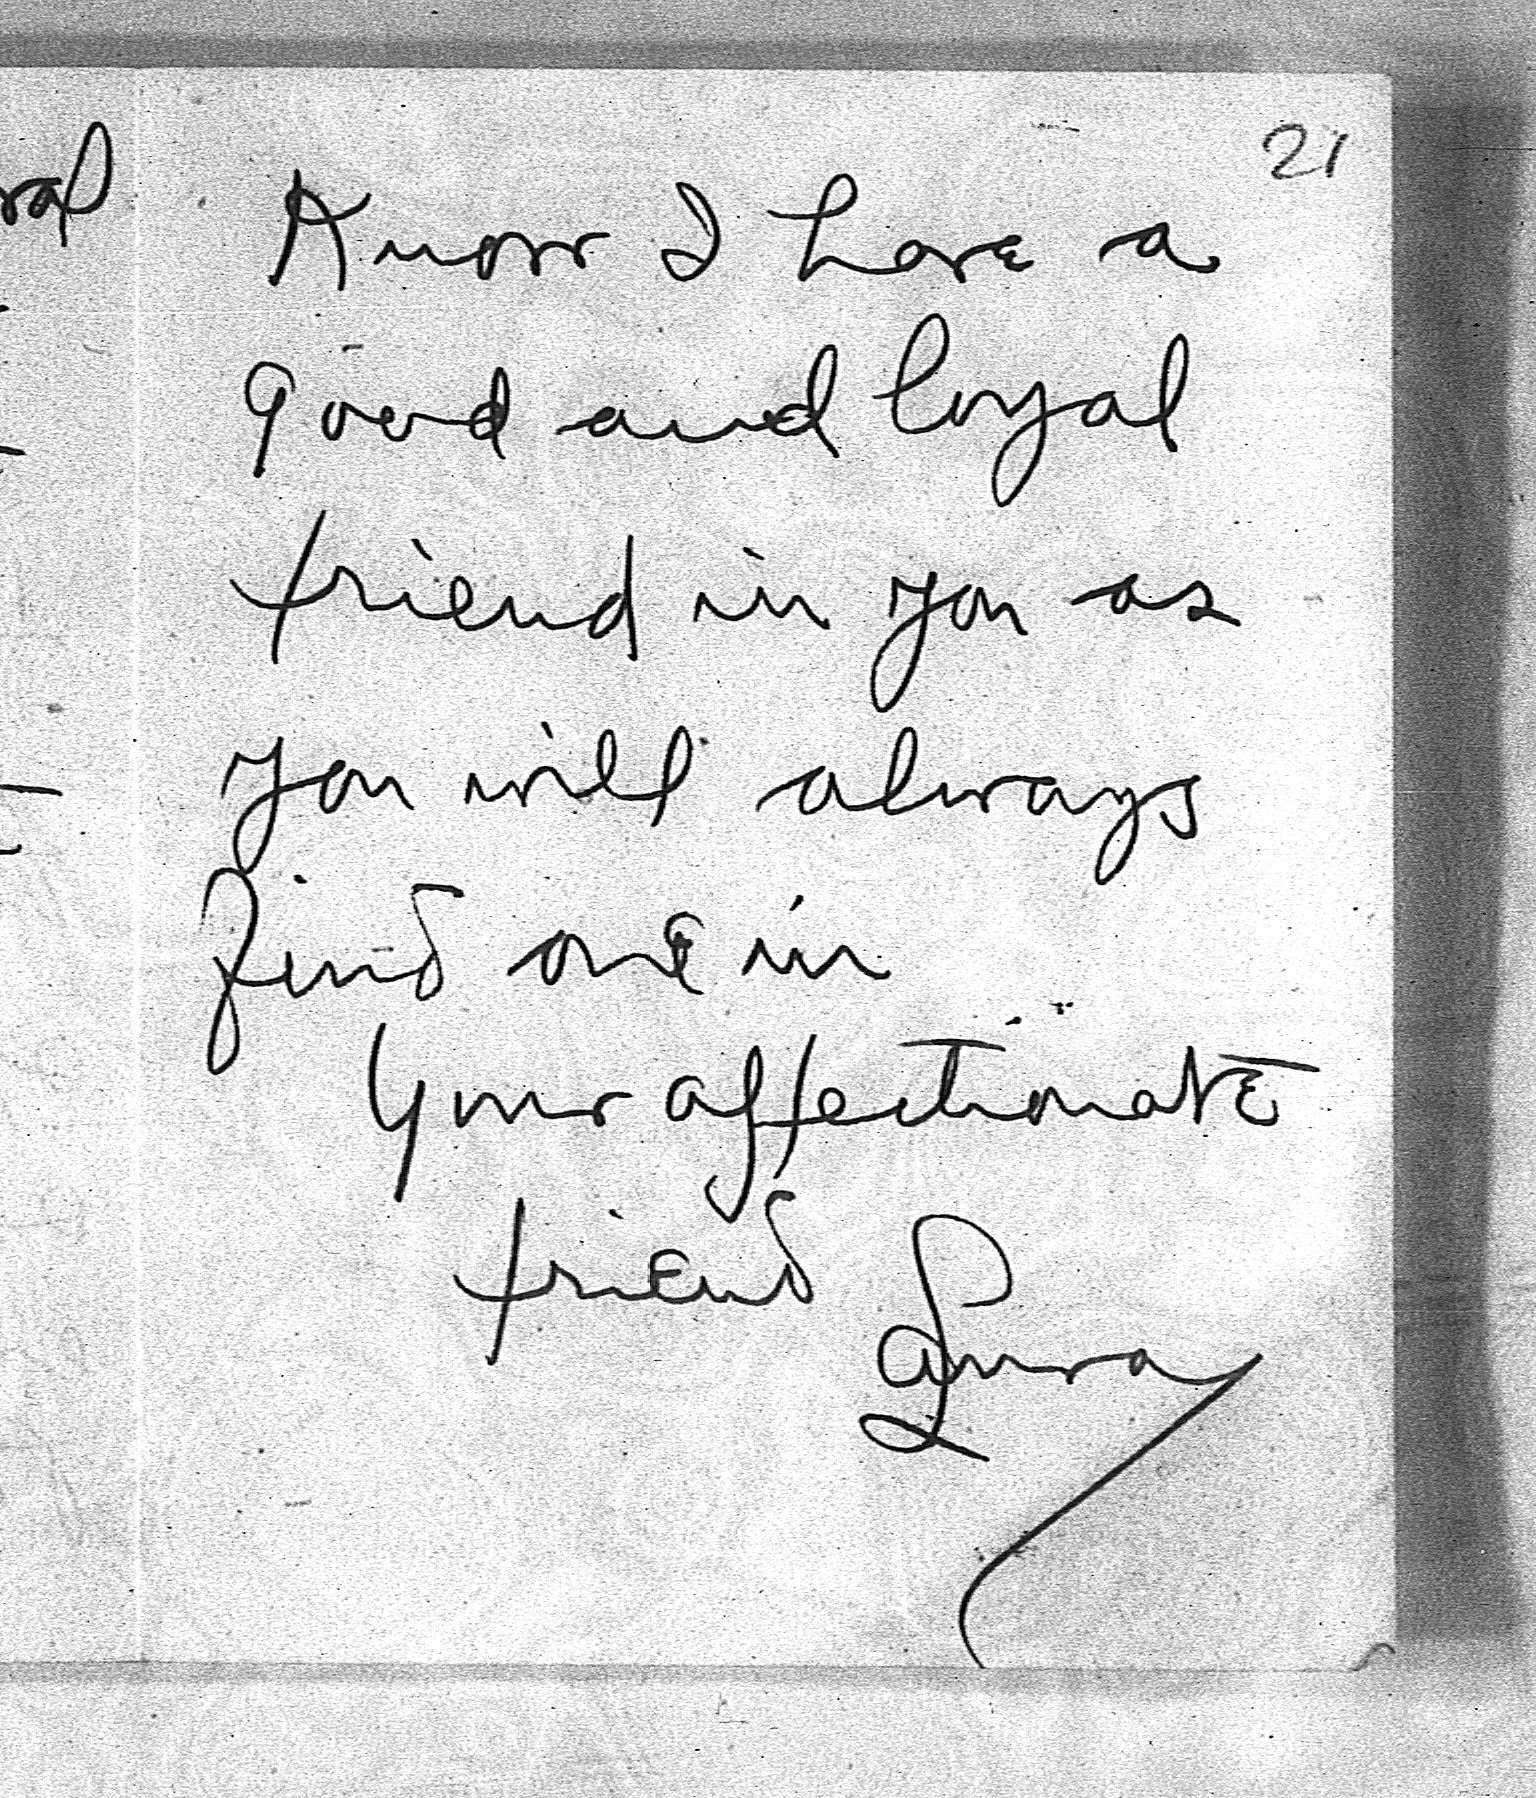 21
Know I have a
good and loyal
friend in you as
you will always
find one in
Your affectionate
friend Laura